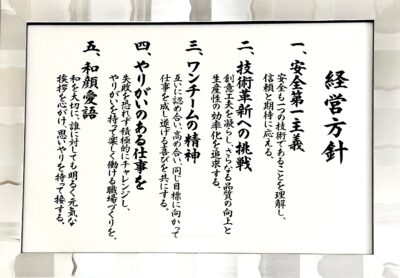 経営方針
一、安全第一主義
安全も一つの技術であることを理解し、
信頼と期待に応える。
二、技術革新への挑戦
創意工夫を凝らし、さらなる品質の向上と
生産性の効率化を追求する。
三、ワンチームの精神
互いに認め合い、高め合い、同じ目標に向かって
仕事を成し遂げる喜びを共にする。
四、やりがいのある仕事を
失敗を恐れず積極的にチャレンジし、
やりがいを持って楽しく働ける職場づくりを。
五、和顔愛語
和を大切に、誰に対しても明るく元気な
挨拶を心がけ、思いやりを持って接する。